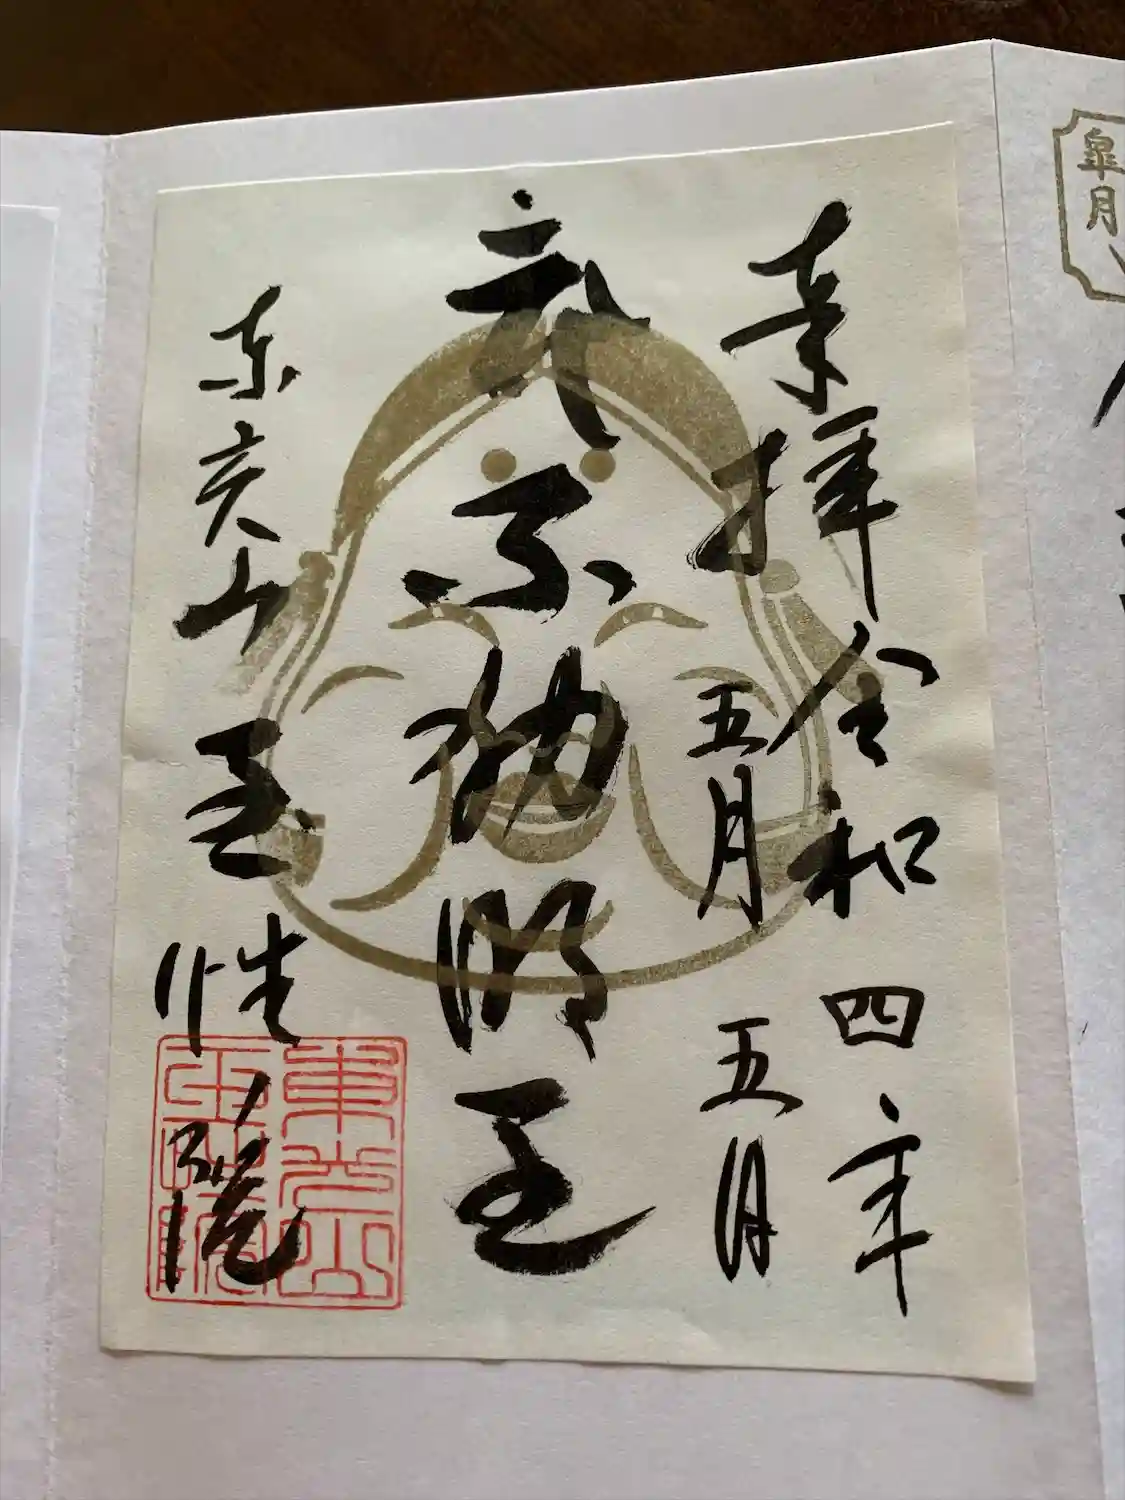 皐月
奉拝 令和四年
五月 五日
不動明王
東光山 玉性院
東光山
玉性院